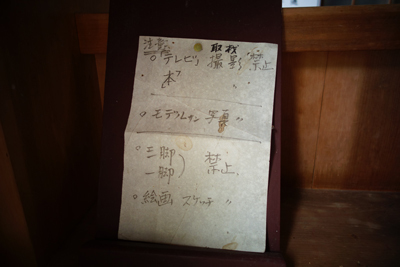 注意
取材
○テレビリ 撮影 禁止
・本 〃
○モデル 写真 〃
○三脚
一脚) 禁止
○絵画 スケッチ 〃